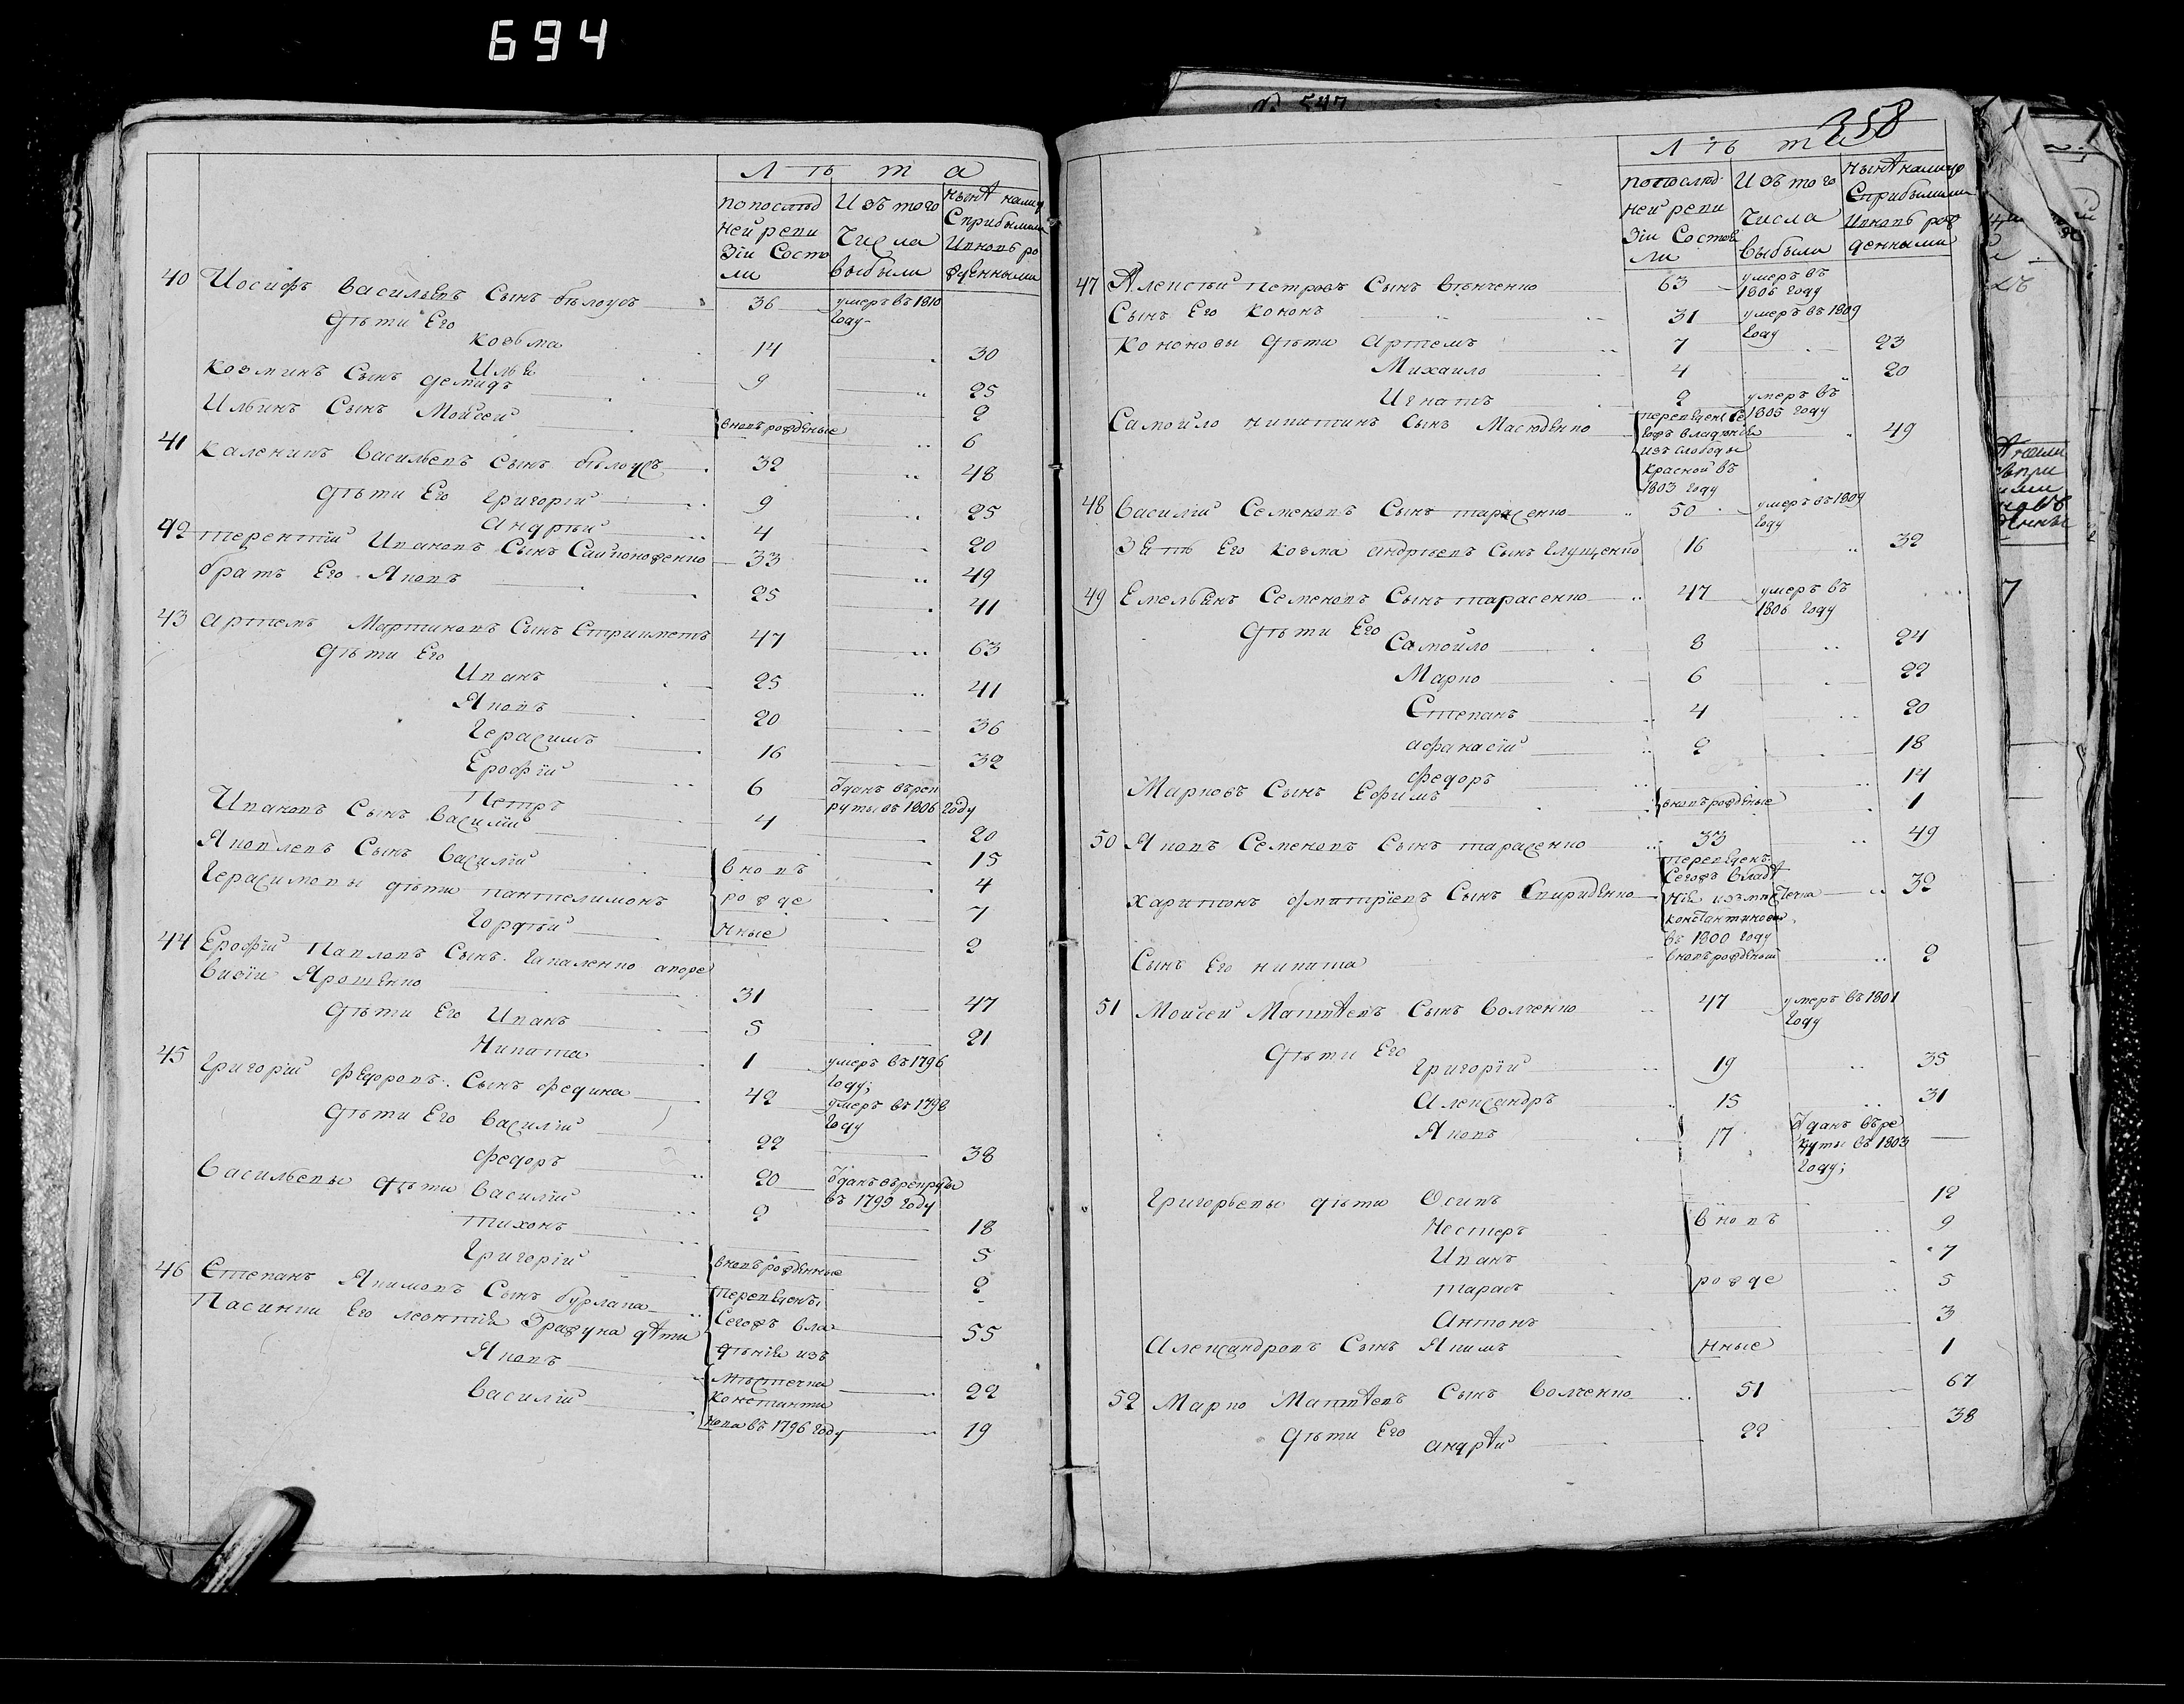 694
Лѣта
По послѣд ней реви зіи Состо ли
Изъ того Числа выбыли
нынѢ налиц Сприбылыми Ивновь ро жденными
40 Иосифъ Васильевъ Сынъ бѣлоусъ 36 умеръ въ 1810 году
Дѣти Его
Козьма 14 30
Илья 9 25
Козминъ Сынъ Демидъ 2
Ильинъ Сынъ Мойсей вновь рожденые 6
41 Каленикъ Васильевъ Сынъ бѣлоусъ 32 48
Дѣти Его Григорій 9 25
Андрѣй 4 20
42 Терентій Ивановъ Сынъ 33 49
братъ Его Яковъ 25 41
43 Артемъ Мартиновъ Сынъ 47 63
Дѣти Его
Иванъ 25 41
Яковъ 20 36
Герасимъ 16 32
Ерофій 6 Зданъ въ рек руты въ 1806 году
Петръ 4 20
Ивановъ Сынъ Василій 15
Яковлевъ Сынъ Василій вновь 4
Герасимовы дѣти пантелимонъ рожде 7
Гордѣй нные 2
44 Ерофій Павловъ Сынъ Гапаленко апоре
визіи Ярошенко 31 47
Дѣти Его Иванъ 5 21
Никита 1 умеръ въ 1796 году;
45 Григорій Федоровъ Сынъ Федина 42 умеръ въ 1798 году
Дѣти Его Василій 22 38
Федоръ 20 Зданъ въ рекруты въ 1799 году
Васильевы дѣти Василій 2 18
Тихонъ 5
Григорій вновь рожденные 2
46 Степанъ Якимовъ Сынъ бурлака 55
Пасинки Его леонтія дѣти
Яковъ 22
Василій 19
Переведены Сегожъ вла дѣнія изъ Мѣстечка Константи нова въ 1796 году
358
Лѣта
По послѣд ней реви зіи Состоя ли
Изъ того Числа выбыли
нынѢ налицо Сприбылыми Ивновь рож денными
47 Алексѣй Петровъ Сынъ 63 умеръ въ 1806 году
Сынъ Его Кононъ 31 умеръ въ 1809 году
Кононовы Дѣти Артемъ 7 23
Михаило 4 20
Игнатъ 2 умеръ въ 1805 году
Самойло никитинъ Сынъ Масюденко переведенъ Се гожъ владѣнія изъ слободы Красной въ 1803 году 49
48 Василій Семеновъ Сынъ тарасенко 50 умеръ въ 1809 году
Зять Его Козма андрѣевъ Сынъ Глущенко 16 32
49 Емельянъ Семеновъ Сынъ тарасенко 47 умеръ въ 1806 году
Дѣти Его
Самойло 8 24
Марко 6 22
Степанъ 4 20
Афанасій 2 18
Федоръ 14
Марковъ Сынъ Ефимъ вновь рожденые 1
50 Яковъ Семеновъ Сынъ тарасенко 33 49
Харитонъ Дмитріевъ Сынъ Спириденко Переведенъ Сегожъ владѣ нія изъ мѣстечка константинова въ 1800 году 32
Сынъ Его никита вновь рожденый 2
51 Мойсей МатвѢевъ Сынъ Волченко 47 умеръ въ 1801 году
Дѣти Его
Григорій 19 35
Александръ 15 31
Яковъ 17 Зданъ въ ре круты въ 1803 году;
Григорьевы дѣти Осипъ 12
Нестеръ вновь 9
Иванъ 7
Тарасъ рожде 5
Антонъ 3
Александровъ Сынъ Якимъ нные 1
52 Марко МатвѢевъ Сынъ Волченко 51 67
Дѣти Его АндрѢй 22 38